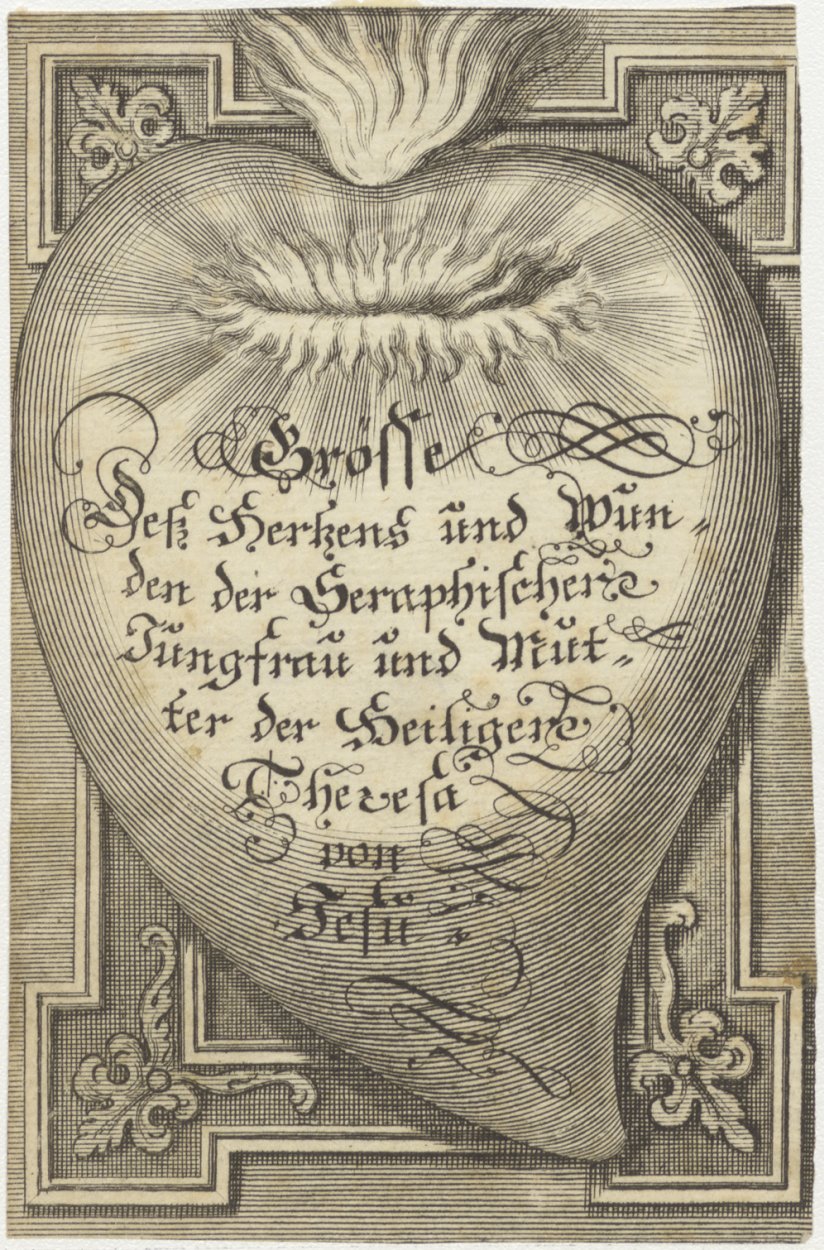 Grösse
Deß Hertzens und Wun⸗
den der Seraphischen
Jungfrau und Mut⸗
ter der Heiligen
Theresa
von
Jesu